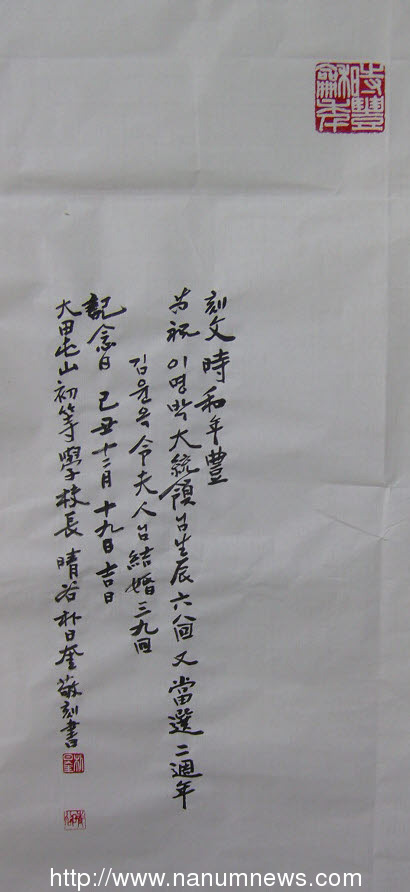 刻文 時和年豐
为祝 이명박 大統領台生辰 六八回 又 當選 二週年
김윤옥 令夫人台 結婚 三九回
記念日 己丑十二月 十九日 吉日
大田屯山初等學校長 晴谷 朴日奎 敬刻書
http://www.nanumnews.com